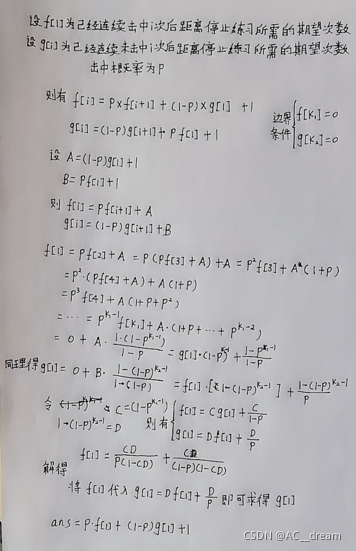 设f[i]为已经连续击中i次后距离停止练习所需的期望次数
设g[i]为已经连续未击中i次后距离停止练习所需的期望次数
击中概率为P
则有 f[i] = P×f[i+1] + (1-P)×g[1] +1
g[i] = (1-P)g[i+1] + Pf[1] +1
边界条件 { f[K₁]=0
g[K₂]=0
设 A=(1-P)g[1]+1
B= Pf[1]+1
则 f[i] = Pf[i+1] + A
g[i] = (1-P)g[i+1]+B
f[1] = Pf[2]+A = P(Pf[3]+A)+A = P²f[3]+A(1+P)
= P²·(Pf[4]+A)+A(1+P)
= P³f[4]+A(1+P+P²)
= ··· = P^{K₁-1}f[K₁]+A·(1+P+···+P^{K₁-2})
= 0 + A·\frac{1·(1-P^{K₁-1})}{1-P} = g[1]·(1-P^{K₁-1})+\frac{1-P^{K₁-1}}{1-P}
同理得 g[1] = 0+B·\frac{1-(1-P)^{K₂-1}}{1-(1-P)} = f[1]·[1-(1-P)^{K₂-1}]+\frac{1-(1-P)^{K₂-1}}{P}
令 C=(1-P^{K₁-1})
1-(1-P)^{K₂-1}=D
则有 { f[1]=Cg[1]+\frac{C}{1-P}
g[1]=Df[1]+\frac{D}{P}
解得 f[1] = \frac{CD}{P(1-CD)}+\frac{C}{(1-P)(1-CD)}
将f[1]代入g[1]=Df[1]+\frac{D}{P}即可求得g[1]
ans = P·f[1]+(1-P)g[1]+1
CSDN @AC__dream